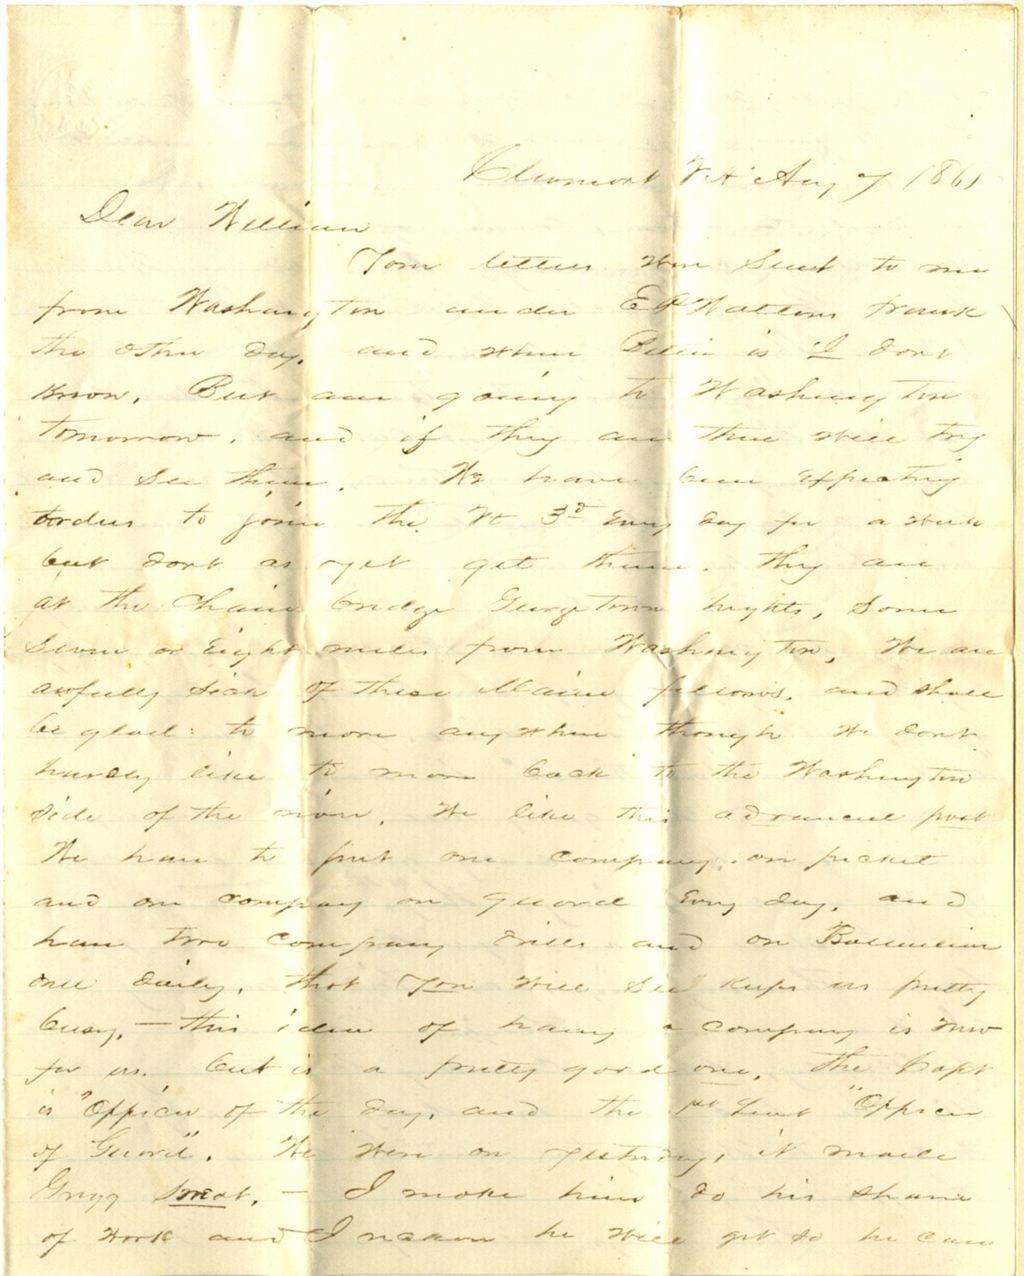 Clermont Va Aug 7 1861
Dear William
Your letters were sent to me
from Washington under E P Waltons frank
the other day. and where Billie is I dont
know. But am going to Washington
tomorrow. and if they are there will try
and see them. We have been expecting
orders to join the Vt 3d every day for a week
but dont as yet get them. they are
at the Chain bridge Georgetown hights, some
seven or eight miles from Washington, We are
awfully sick of these Maine fellows. and shall
be glad to move any where though we dont
hardly like to move back to the Washington
side of the river. We like this advanced post
We have to put one company on picket
and one company on guard every day, and
have two company drills and on Battallion
one daily. that you will see keeps us pretty
busy, — this idea of having a company is new
for us. but is a pretty good one, the Capt
is "Officer of the day, and the 1st Lieut "Officer
of Guard". We were on yesterday, it made
Grigg sweat. — I make him do his share
of work and I reckon he will get so he can